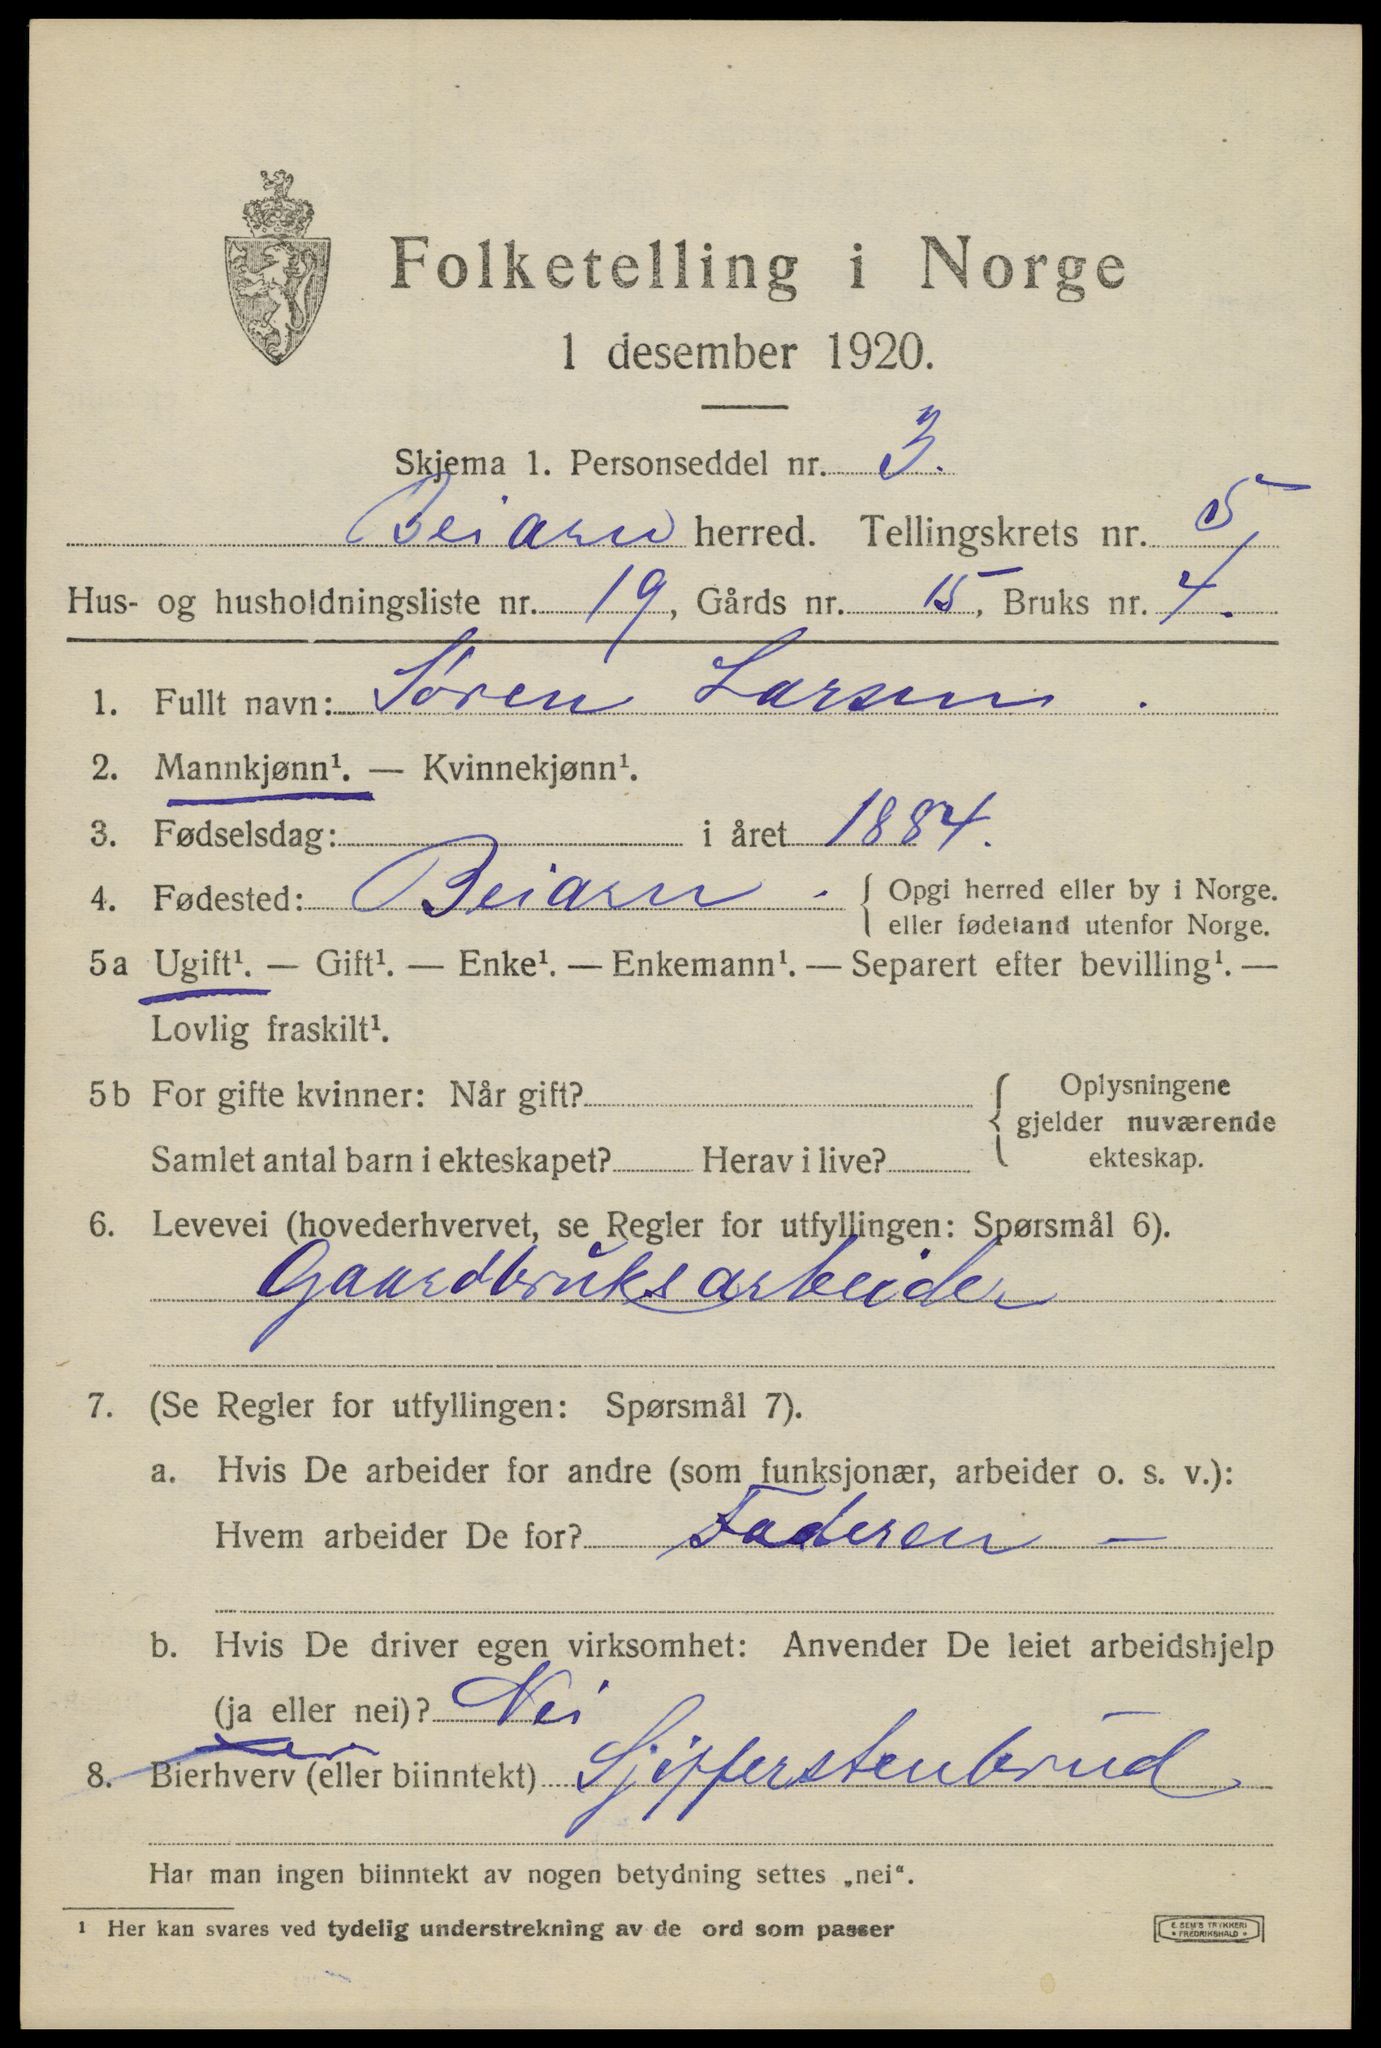 Folketelling i Norge
1 desember 1920.
Skjema 1. Personseddel nr. 3.
Beiarn herred. Tellingskrets nr. 5
Hus- og husholdningsliste nr. 19, Gårds nr. 15, Bruks nr. 4.
1. Fullt navn: Søren Larsen.
2. Mannkjønn¹. — Kvinnekjønn¹.
3. Fødselsdag: i året 1884.
4. Fødested: Beiarn - { Opgi herred eller by i Norge.
eller fødeland utenfor Norge.
5a Ugift¹. — Gift¹. — Enke¹. — Enkemann¹. — Separert efter bevilling¹. —
Lovlig fraskilt¹.
5b For gifte kvinner: Når gift? { Oplysningene
gjelder nuværende
Samlet antal barn i ekteskapet? Herav i live? ekteskap.
6. Levevei (hovederhvervet, se Regler for utfyllingen: Spørsmål 6).
Gaardbruksarbeider
7. (Se Regler for utfyllingen: Spørsmål 7).
a. Hvis De arbeider for andre (som funksjonær, arbeider o. s. v.):
Hvem arbeider De for? Faderen —
b. Hvis De driver egen virksomhet: Anvender De leiet arbeidshjelp
(ja eller nei)? Nei
8. Bierhverv (eller biinntekt)
Har man ingen biinntekt av nogen betydning settes „nei“.
1 Her kan svares ved tydelig understrekning av de ord som passer
E. SEM'S TRYKKERI
FREDRIKSHALD